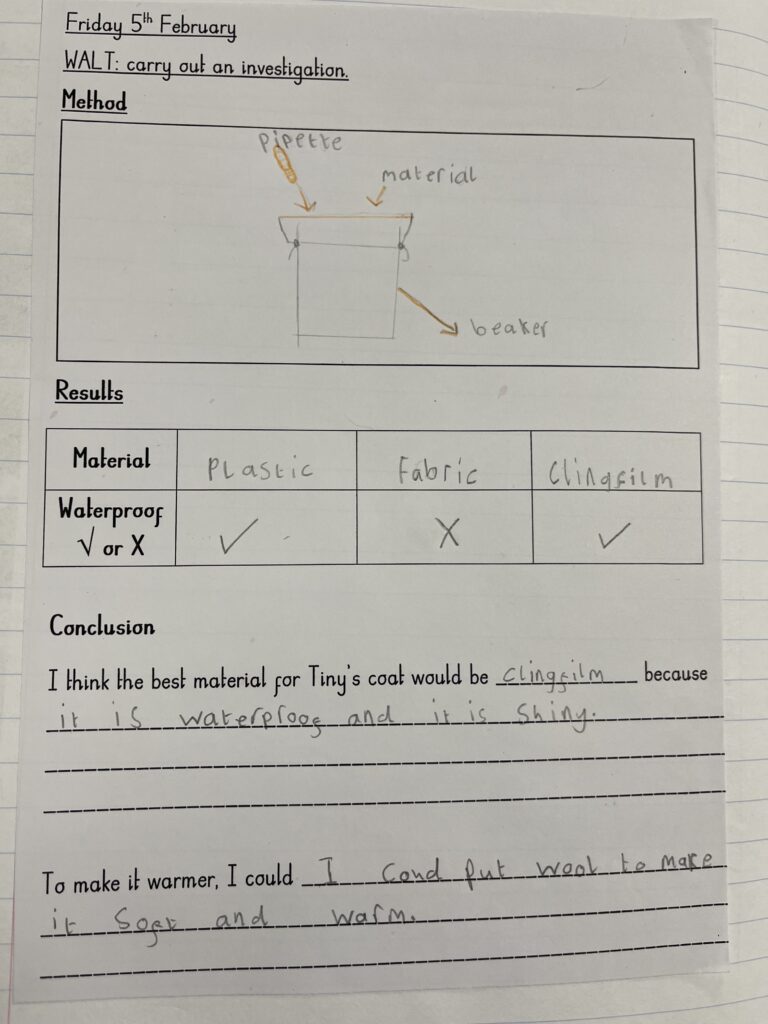 Friday 5th February
WALT: carry out an investigation.
Method
pipette
material
beaker
Results
Material PLastic Fabric Clingfilm
Waterproof √ or X ✓ X ✓
Conclusion
I think the best material for Tiny's coat would be clingfilm because
it is waterproof and it is shiny.
To make it warmer, I could I coud put wool to make
it soft and warm.